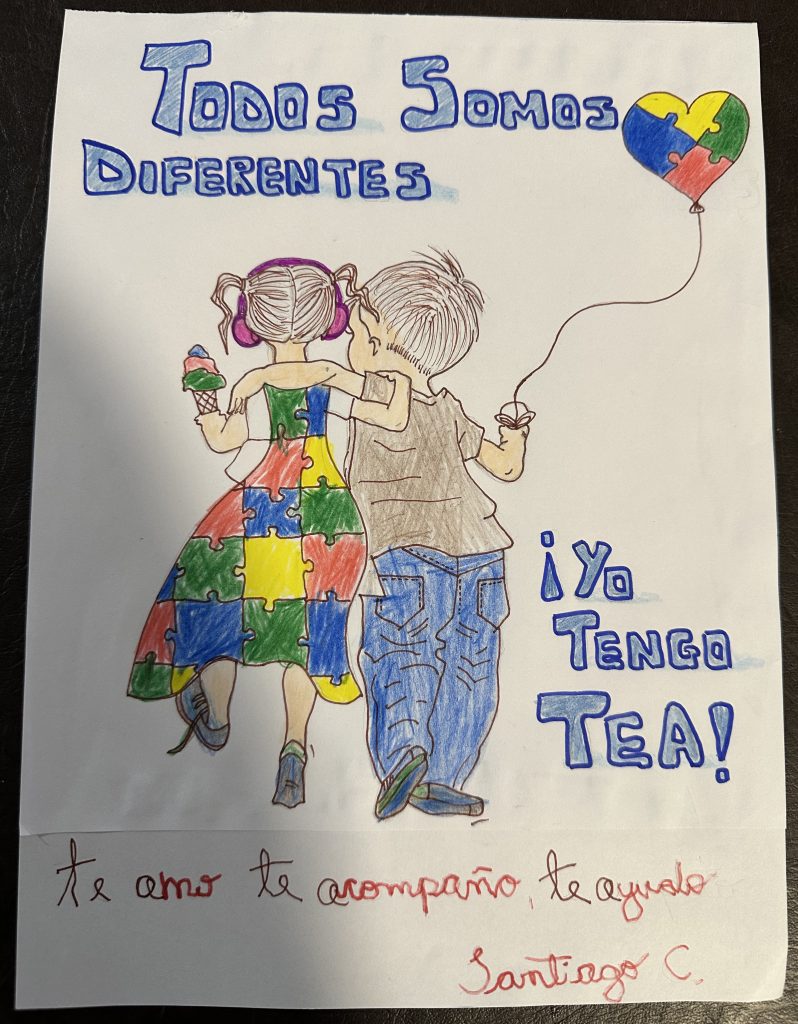 TODOS SOMOS
DIFERENTES
¡YO
TENGO
TEA!
te amo te acompaño, te ayudo
Santiago C.